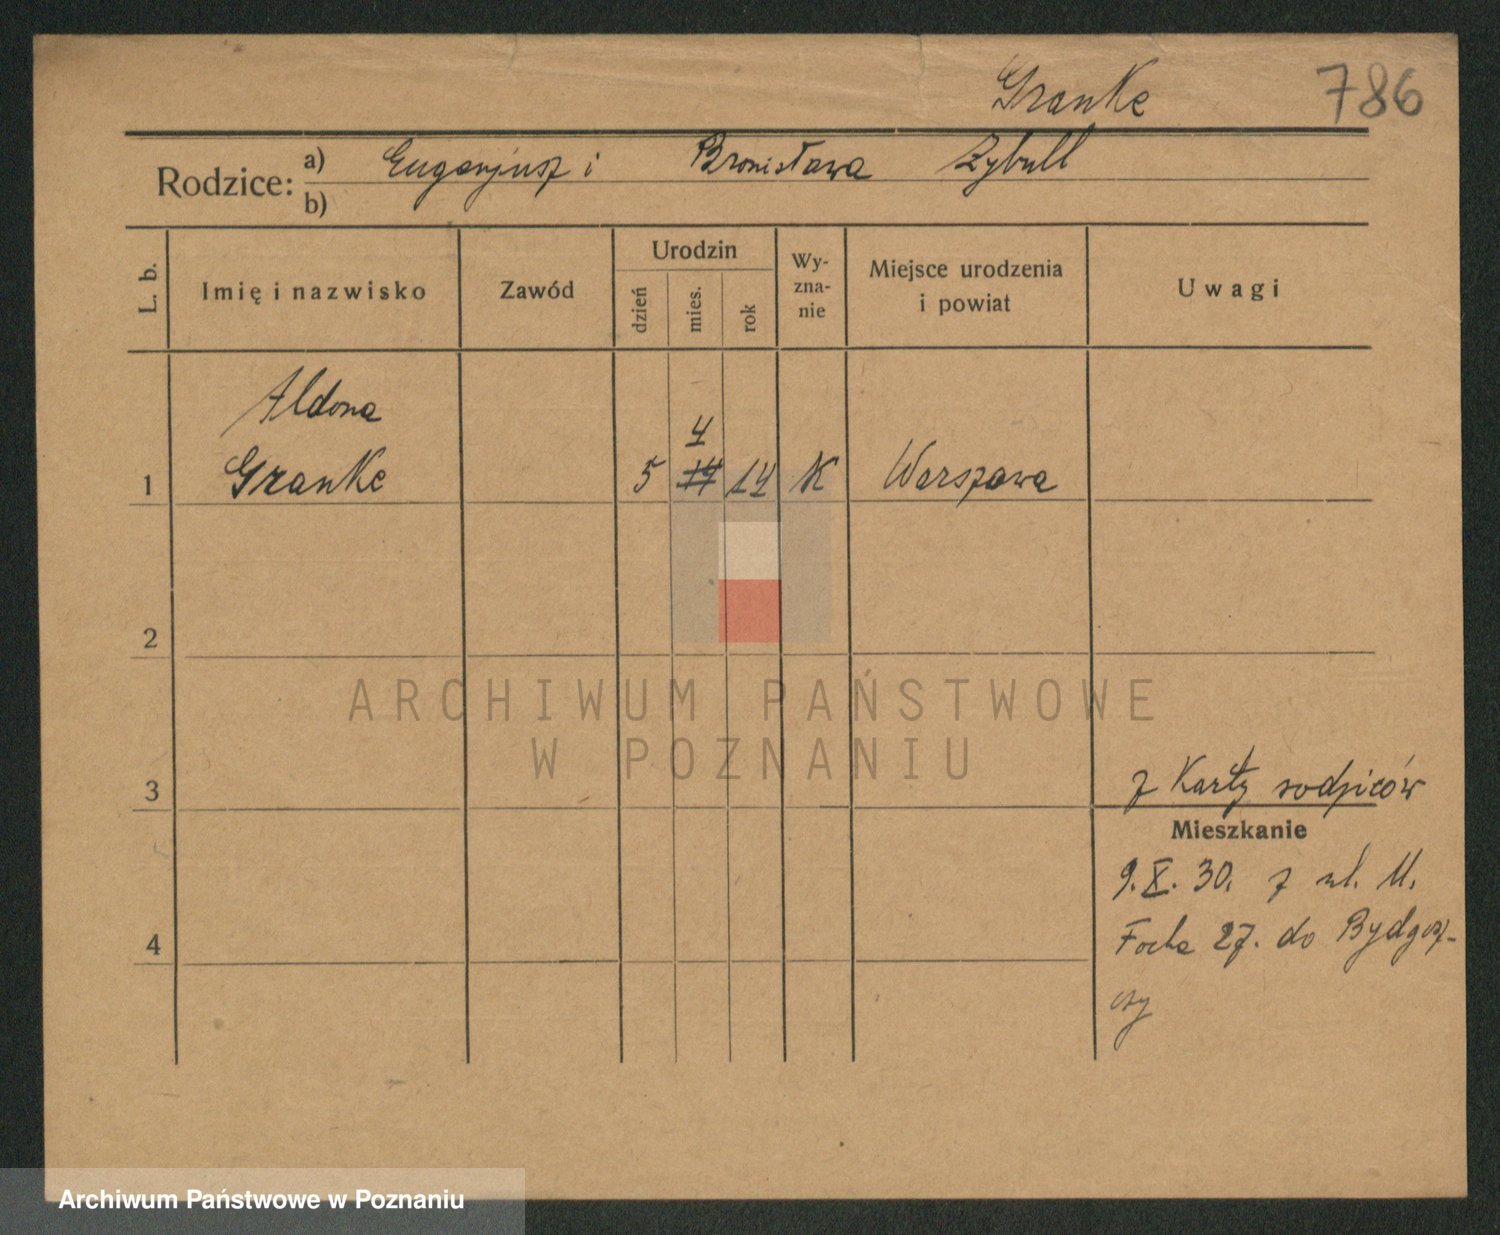 Granke 786
Rodzice: a) Eugenjusz i Bronisława Zybull
b)
L. b. Imię i nazwisko Zawód Urodzin dzień mies. rok Wyznanie Miejsce urodzenia i powiat Uwagi
Aldona
4
1 Granke 5 14 14 K Warszawa
2
ARCHIWUM PAŃSTWOWE
W POZNANIU
3 z Karty rodziców
Mieszkanie
9. X. 30. z ul. M.
4 Focha 27. do Bydgosz-
czy
Archiwum Państwowe w Poznaniu